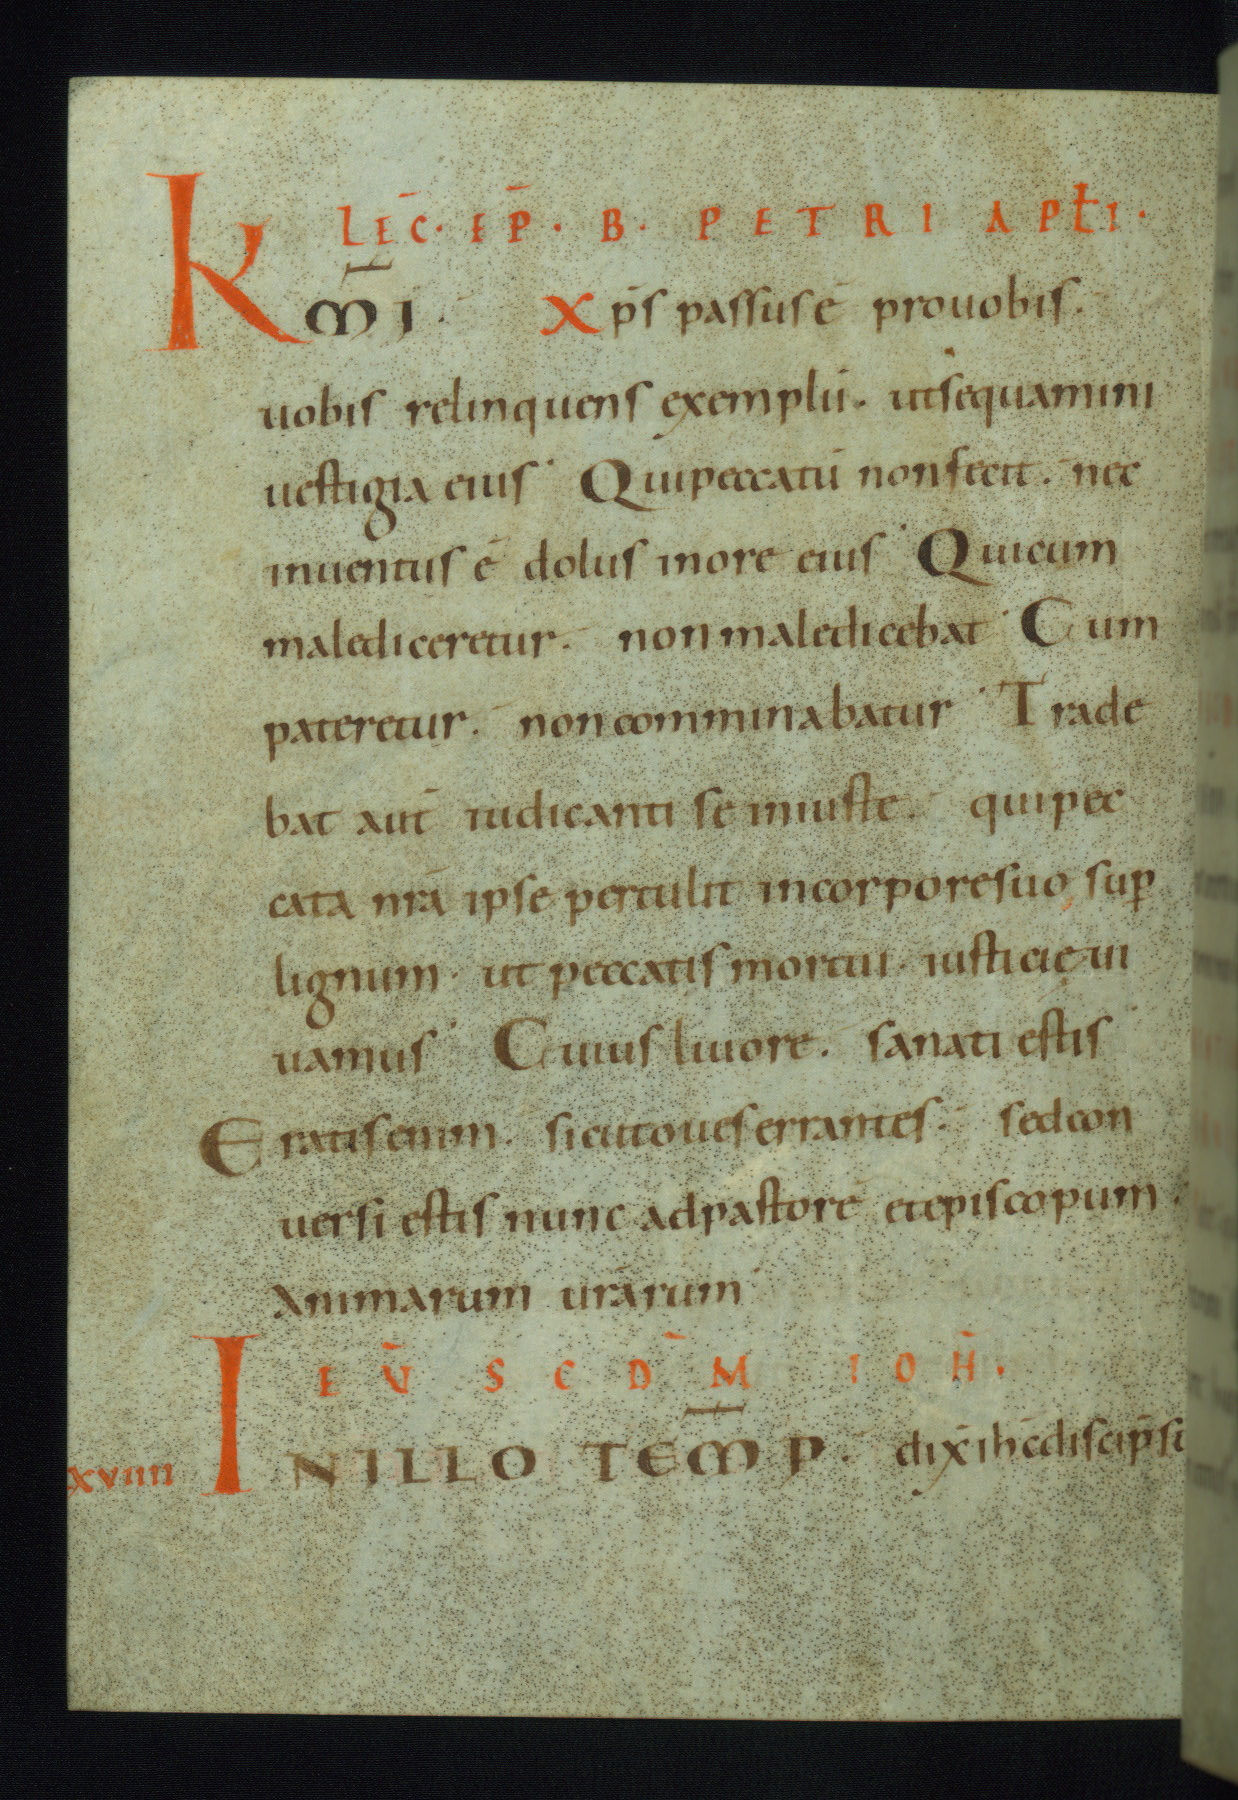 LEC̄. EP̄. B. PETRI APƚI.
KM̄I. Xp̄s passus ē pro uobis.
uobis relinquens exemplū. ut sequamini
uestigia eius. Qui peccatū non fecit. nec
inuentus ē dolus in ore eius. Qui cum
malediceretur. non maledicebat. Cum
pateretur. non comminabatur. Trade
bat aut̄ iudicanti se iniuste. qui pec
cata nrā ipse pertulit in corpore suo sup̄
lignum. ut peccatis mortui. iusticię ui
uamus. Cuius liuore. sanati estis.
Eratis enim. sicut oues errantes. sed con
uersi estis nunc ad pastorē et episcopum.
Animarum urārum.
EŪ SCDM̄ IOH̄.
xviiii INILLO TEM̄P. dix̄ ihc̄ discip̄ s